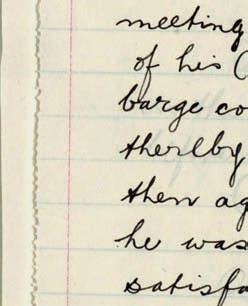 meeting
of his (
barge co
thereby
then ag
he was
satisfa